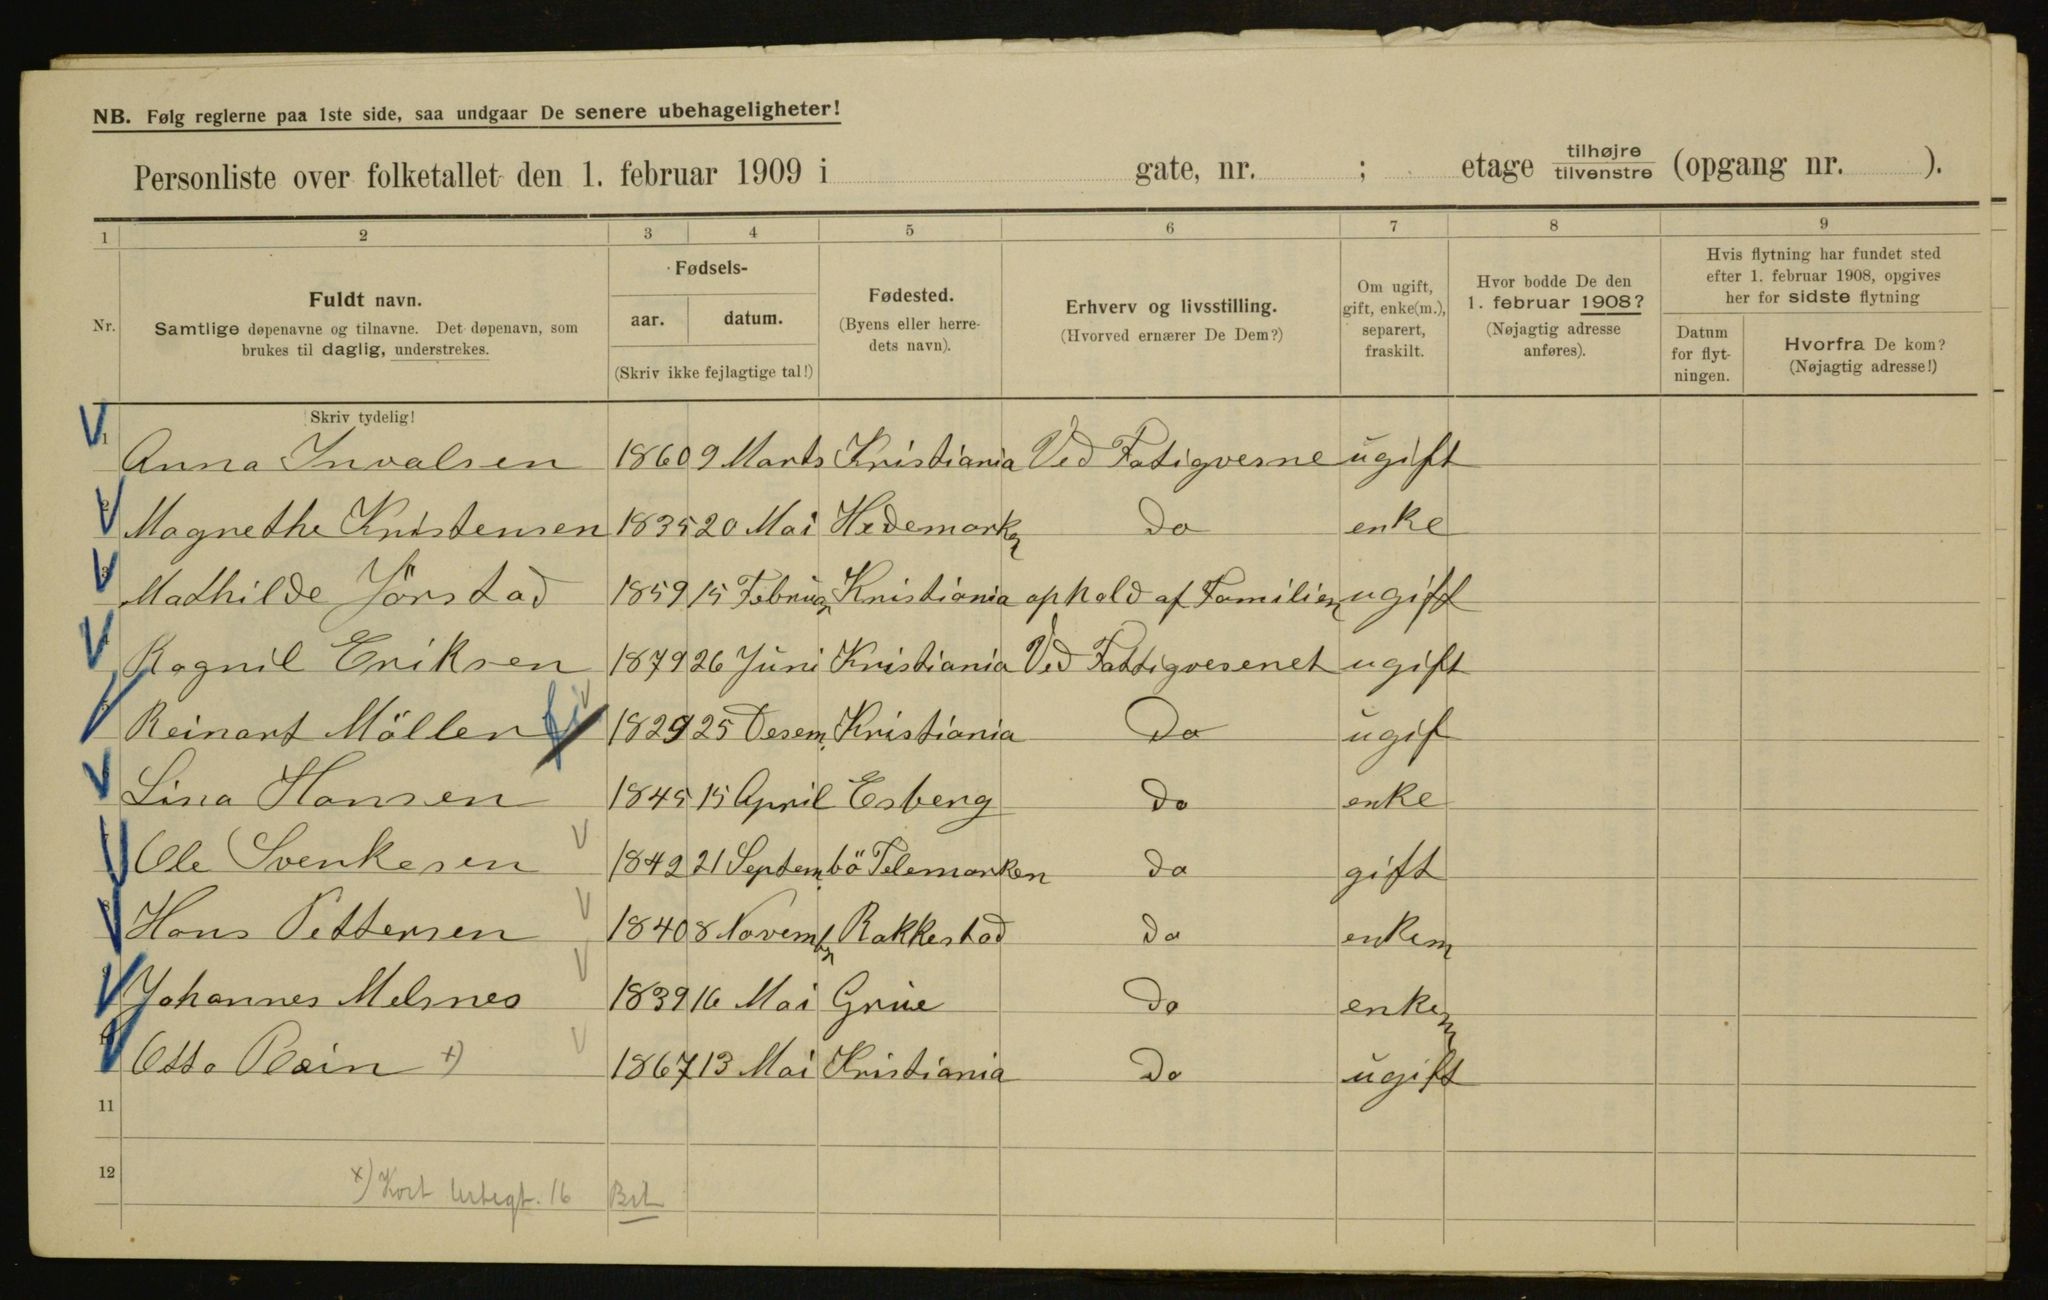 NB. Følg reglerne paa 1ste side, saa undgaar De senere ubehageligheter!
Personliste over folketallet den 1. februar 1909 i gate, nr. ; etage tilhøjre tilvenstre (opgang nr. ).
1 2 3 4 5 6 7 8 9
Nr.
Fuldt navn.
Samtlige døpenavne og tilnavne. Det døpenavn, som
brukes til daglig, understrekes.
Fødsels-
aar. datum.
(Skriv ikke fejlagtige tal!)
Fødested.
(Byens eller herre-
dets navn).
Erhverv og livsstilling.
(Hvorved ernærer De Dem?)
Om ugift,
gift, enke(m.),
separert,
fraskilt.
Hvor bodde De den
1. februar 1908?
(Nøjagtig adresse
anføres).
Hvis flytning har fundet sted
efter 1. februar 1908, opgives
her for sidste flytning
Datum
for flyt-
ningen.
Hvorfra De kom?
(Nøjagtig adresse!)
Skriv tydelig!
1 Anna Invalsen 1860 9 Marts Kristiania Ved Fatigvesne ugift
2 Magnethe Kristensen 1835 20 Mai Hedemarken do enke
3 Mathilde Jörstad 1859 15 Februar Kristiania ophold af Familien ugift
4 Ragnil Eriksen 1879 26 Juni Kristiania Ved Fattigvesenet ugift
5 Reinart Möller 1829 25 Desem. Kristiania Do ugif
Lina Hansen 1845 15 April Esberg do enke
Ole Svenkesen 1842 21 Septem. bö Telemarken do gift
8 Hans Pettersen 1840 8 November Rakkestad do enkem
9 Johannes Melsnes 1839 16 Mai Grue do enkem
10 Otto Rein +) 1867 13 Mai Kristiania do ugift
11
12
+) Kort 16